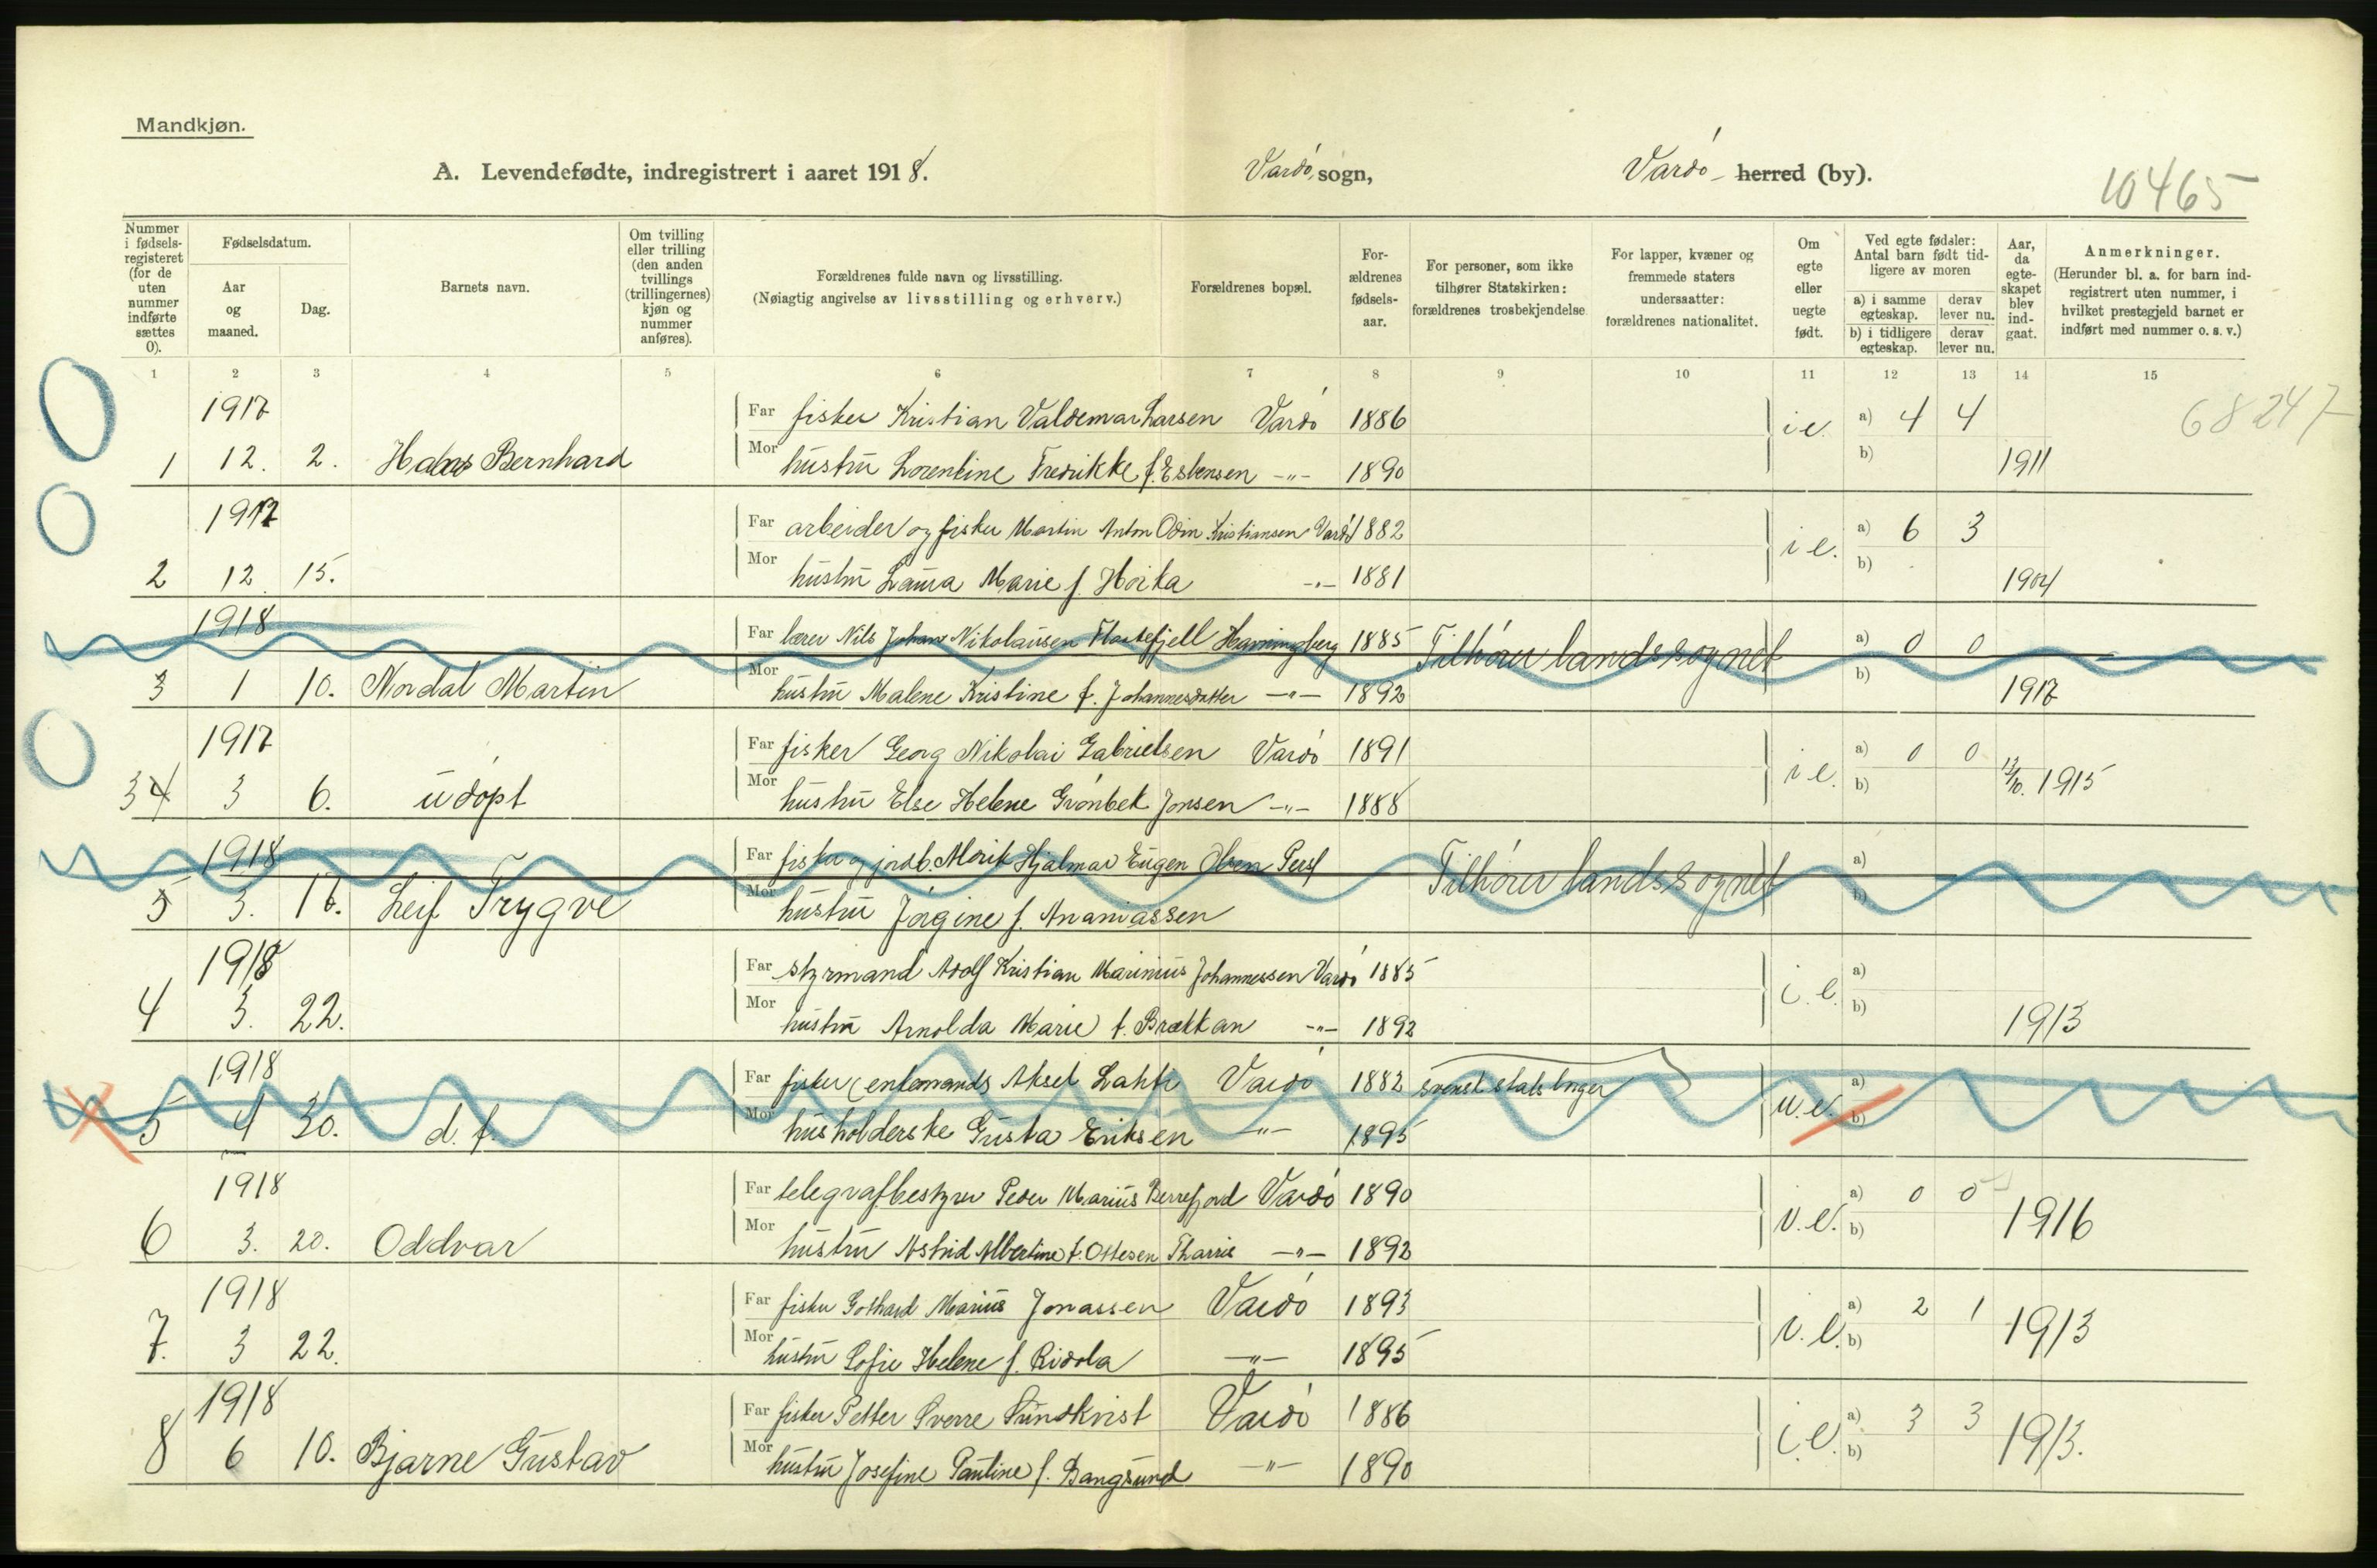 Mandkjøn.
A. Levendefødte, indregistrert i aaret 1918. Vardø sogn, Vardø herred (by).
10465
Nummer i fødsels-registeret (for de uten nummer indførte sættes 0).
Fødselsdatum.
Aar og maaned.
Dag.
Barnets navn.
Om tvilling eller trilling (den anden tvillings (trillingernes) kjøn og nummer anføres).
Forældrenes fulde navn og livsstilling.
(Nøiagtig angivelse av livsstilling og erhverv.)
Forældrenes bopæl.
For-ældrenes fødsels-aar.
For personer, som ikke tilhører Statskirken: forældrenes trosbekjendelse
For lapper, kvæner og fremmede staters undersaatter: forældrenes nationalitet.
Om egte eller uegte født.
Ved egte fødsler: Antal barn født tid-ligere av moren
a) i samme egteskap.
derav lever nu.
b) i tidligere egteskap.
derav lever nu.
Aar, da egte-skapet blev ind-gaat.
Anmerkninger.
(Herunder bl. a. for barn ind-registrert uten nummer, i hvilket prestegjeld barnet er indført med nummer o. s. v.)
1 2 3 4 5 6 7 8 9 10 11 12 13 14 15
68247
1917 Far fisker Kristian Valdemar Larsen Vardø 1886 i e. a) 4 4
1 12. 2. Bernhard Mor hustru Lorentine Fredrikke f. Esbensen -"- 1890 b) 1911
1917 Far arbeider og fisker Martin Anton Odin Kristiansen Vardø 1882 i e. a) 6 3
2 12 15. Mor hustru Laura Marie f. Hoika -"- 1881 b) 1904
1918 Far lærer Nils Johan Nikolausen Hamningberg 1885 Tilhører landssognet a) 0 0
3 1 10. Nordal Martin Mor hustru Malene Kristine f. Johannesdatter -"- 1892 b) 1917
1917 Far fisker Georg Nikolai Gabrielsen Vardø 1891 i e. a) 0 0
34 3 6. udøpt Mor hustru Else Helene Grønbek Jonsen -"- 1888 b) 12/10. 1915
1918 Far fisker og jordb. Morik Hjalmar Eugen Olsen Tilhører landssognet a)
5 3. 17. Leif Trygve Mor hustru Jørgine f. Ananiassen b)
1918 Far styrmand Adolf Kristian Marinius Johannessen Vardø 1885 i. e. a)
4 3. 22. Mor hustru Arnolda Marie f. Brækkan -"- 1892 b) 1913
1918 Far fisker (enkemand) Aksel Lahti Vardø 1882 svensk statsborger u. e. a)
5 4 30. d. f. Mor husholderske Gusta Eriksen -"- 1895 b)
1918 Far telegrafbestyrer Peder Marius Vardø 1890 i. e. a) 0 0
6 3. 20. Oddvar Mor hustru Astrid Albertine f. Ottesen -"- 1892 b) 1916
1918 Far fisker Gothard Marius Jonassen Vardø 1893 i. e. a) 2 1
7. 3 22. Mor hustru Sofie Helene f. Ridola -"- 1895 b) 1913
1918 Far fisker Petter Sverre Sundkvist Vardø 1886 i. e. a) 3 3
8 6 10. Bjarne Gustav Mor hustru Josefine Pauline f. Bangsund -"- 1890 b) 1913.